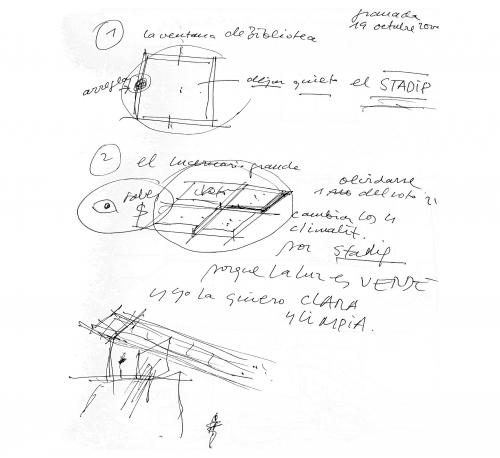 granada
19 octubre 2000
1 la ventana de Biblioteca
arreglar
dejar quieto el STADIP
2 el lucernario grande
olvidarse
sobe
$
cambiar los 4
climalit.
por stadip
porque la luz es VERDE
y yo la quiero CLARA
y LIMPIA.